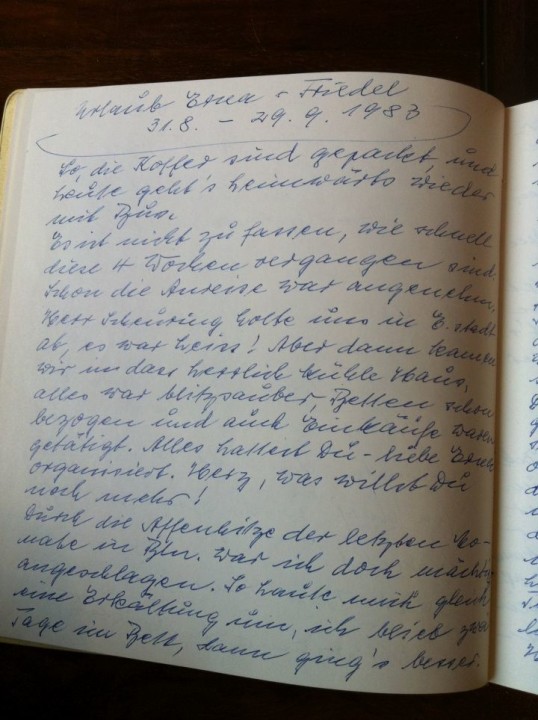 Urlaub Erna + Friedel
31.8. – 29.9.1983
So, die Koffer sind gepackt, und
heute geht's heimwärts wieder
mit Bus.
Es ist nicht zu fassen, wie schnell
diese 4 Wochen vergangen sind.
Schon die Anreise war angenehm,
Herr Scheuring holte uns in E.stadt
ab, es war heiss! Aber dann kamen
wir in das herrlich kühle Haus,
alles war blitzsauber, Betten schon
bezogen und auch Einkäufe waren
getätigt. Alles hattest Du – liebe Erna
organisiert. Herz, was willst Du
noch mehr!
Durch die Affenhitze der letzten Mo-
nate in Bln. war ich doch mächtig
angeschlagen. So haute mich gleich
eine Erkältung um, ich blieb zwei
Tage im Bett, dann ging's besser.